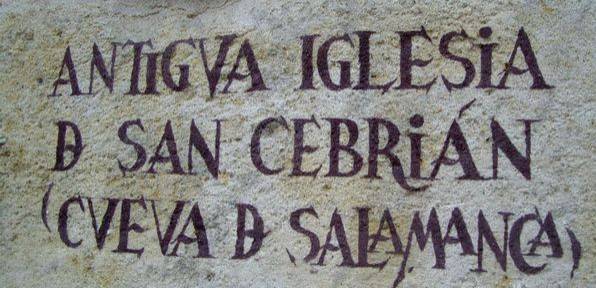 ANTIGVA IGLESiA
D SAN CEBRiÁN
(CVEVA D SALAMANCA)